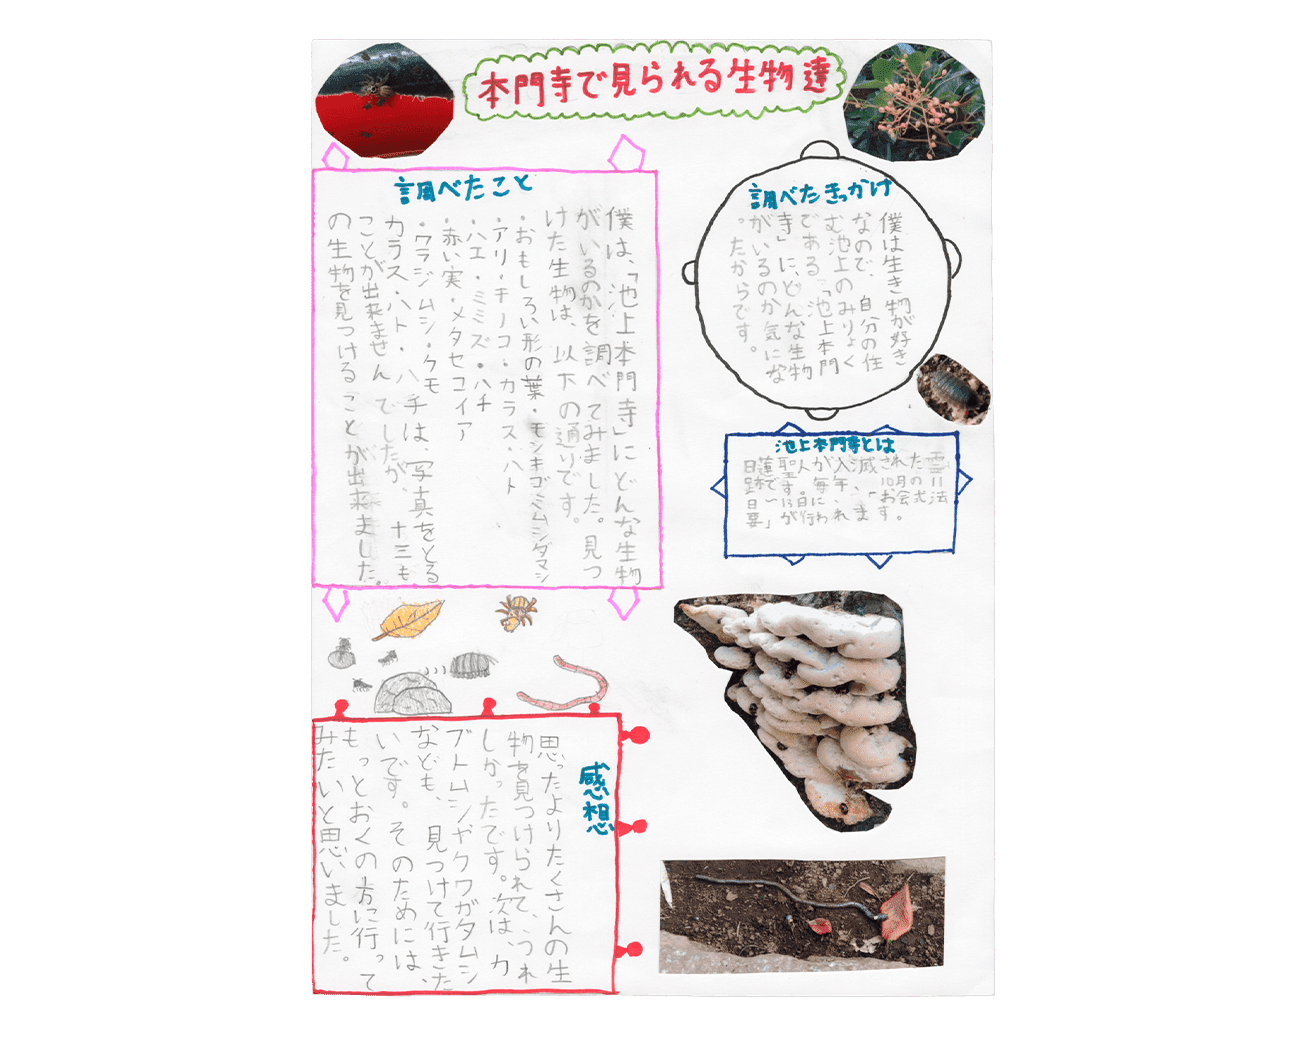 本門寺で見られる生物達
調べたきっかけ
僕は生き物が好き
なので、自分の住
む池上のみりょく
である「池上本門
寺」に、どんな生物
がいるのか気にな
ったからです。
池上本門寺とは
日蓮聖人が入滅された霊
跡です。毎年、10月の11
日〜13日に「お会式法
要」が行われます。
調べたこと
僕は、「池上本門寺」にどんな生物
がいるのかを調べてみました。見つ
けた生物は、以下の通りです。
・おもしろい形の葉・モンキゴミムシダマシ
・アリ・キノコ・カラス・ハト
・ハエ・ミミズ・ハチ
・赤い実・メタセコイア
・ワラジムシ・クモ
カラス・ハト・ハチは、写真をとる
ことが出来ませんでしたが、十三も
の生物を見つけることが出来ました。
感想
思ったよりたくさんの生
物を見つけられて、うれ
しかったです。次は、カ
ブトムシやクワガタムシ
なども、見つけて行きた
いです。そのためには、
もっとおくの方に行って
みたいと思いました。